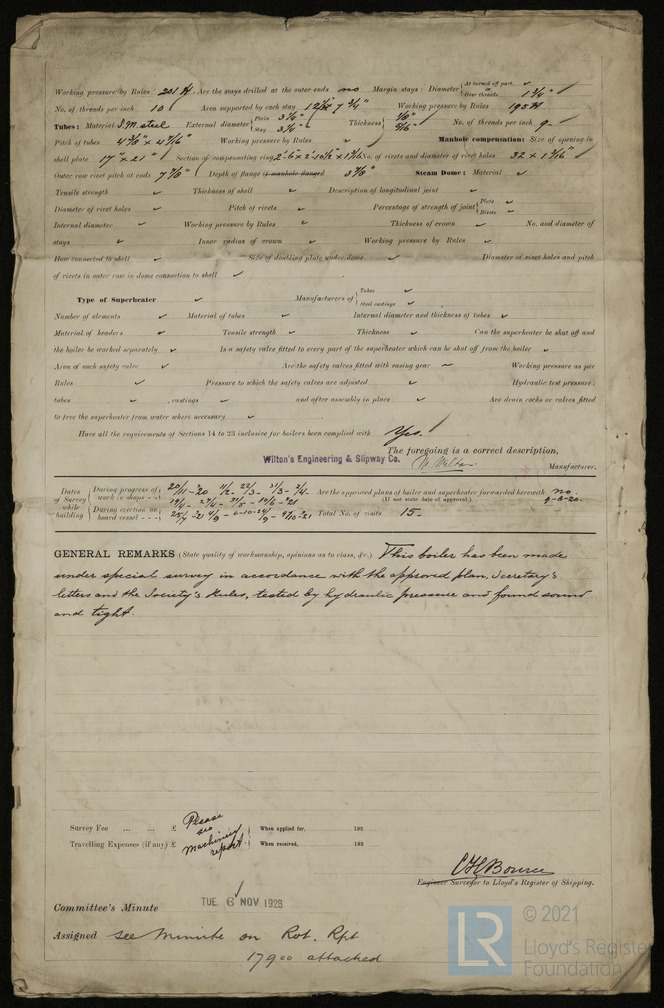 Working pressure by Rules 201 # Are the stays drilled at the outer ends no Margin stays: Diameter { At turned off part, or Over threads 1 3/4"
No. of threads per inch 10 Area supported by each stay 7 3/4" Working pressure by Rules 195 #
Tubes: Material S.M. steel External diameter { Plain 3 1/4" Stay 3 1/4" Thickness { 5/16" No. of threads per inch 9
Pitch of tubes 4 3/8" x 4 7/16" Working pressure by Rules ✓ Manhole compensation: Size of opening in
shell plate 17" x 21" Section of compensating ring No. of rivets and diameter of rivet holes 32 x 1 3/16"
Outer row rivet pitch at ends 7 7/8" Depth of flange if manhole flanged 3 7/8" Steam Dome: Material ✓
Tensile strength ✓ Thickness of shell ✓ Description of longitudinal joint ✓
Diameter of rivet holes ✓ Pitch of rivets ✓ Percentage of strength of joint { Plate ✓ Rivets ✓
Internal diameter ✓ Working pressure by Rules ✓ Thickness of crown ✓ No. and diameter of
stays ✓ Inner radius of crown ✓ Working pressure by Rules ✓
How connected to shell ✓ Size of doubling plate under dome ✓ Diameter of rivet holes and pitch
of rivets in outer row in dome connection to shell ✓
Type of Superheater ✓ Manufacturers of { Tubes ✓ Steel castings ✓
Number of elements ✓ Material of tubes ✓ Internal diameter and thickness of tubes ✓
Material of headers ✓ Tensile strength ✓ Thickness ✓ Can the superheater be shut off and
the boiler be worked separately ✓ Is a safety valve fitted to every part of the superheater which can be shut off from the boiler ✓
Area of each safety valve ✓ Are the safety valves fitted with easing gear ✓ Working pressure as per
Rules ✓ Pressure to which the safety valves are adjusted ✓ Hydraulic test pressure:
tubes ✓ , castings ✓ and after assembly in place ✓ Are drain cocks or valves fitted
to free the superheater from water where necessary ✓
Have all the requirements of Sections 14 to 23 inclusive for boilers been complied with Yes.
The foregoing is a correct description,
Wilton's Engineering & Slipway Co. Manufacturer.
Dates of Survey while building { During progress of work in shops - - 20/11-20 11/2- 22/3- 31/3- 19/4- 27/4- 31/5- 10/6-21 Are the approved plans of boiler and superheater forwarded herewith no.
(If not state date of approval.) 9-6-20.
During erection on board vessel - - - Total No. of visits 15-
GENERAL REMARKS (State quality of workmanship, opinions as to class, &c.) This boiler has been made
under special survey in accordance with the approved plan, Secretary's
letters and the Society's Rules, tested by hydraulic pressure and found sound
and tight.
Survey Fee ... ... £ Please see When applied for, 192
Travelling Expenses (if any) £ Machinery report When received, 192
Engineer Surveyor to Lloyd's Register of Shipping.
Committee's Minute TUE. 6 NOV 1923
Assigned see minute on Rot. Rpt
17900 attached
LR © 2021
Lloyd's Register
Foundation